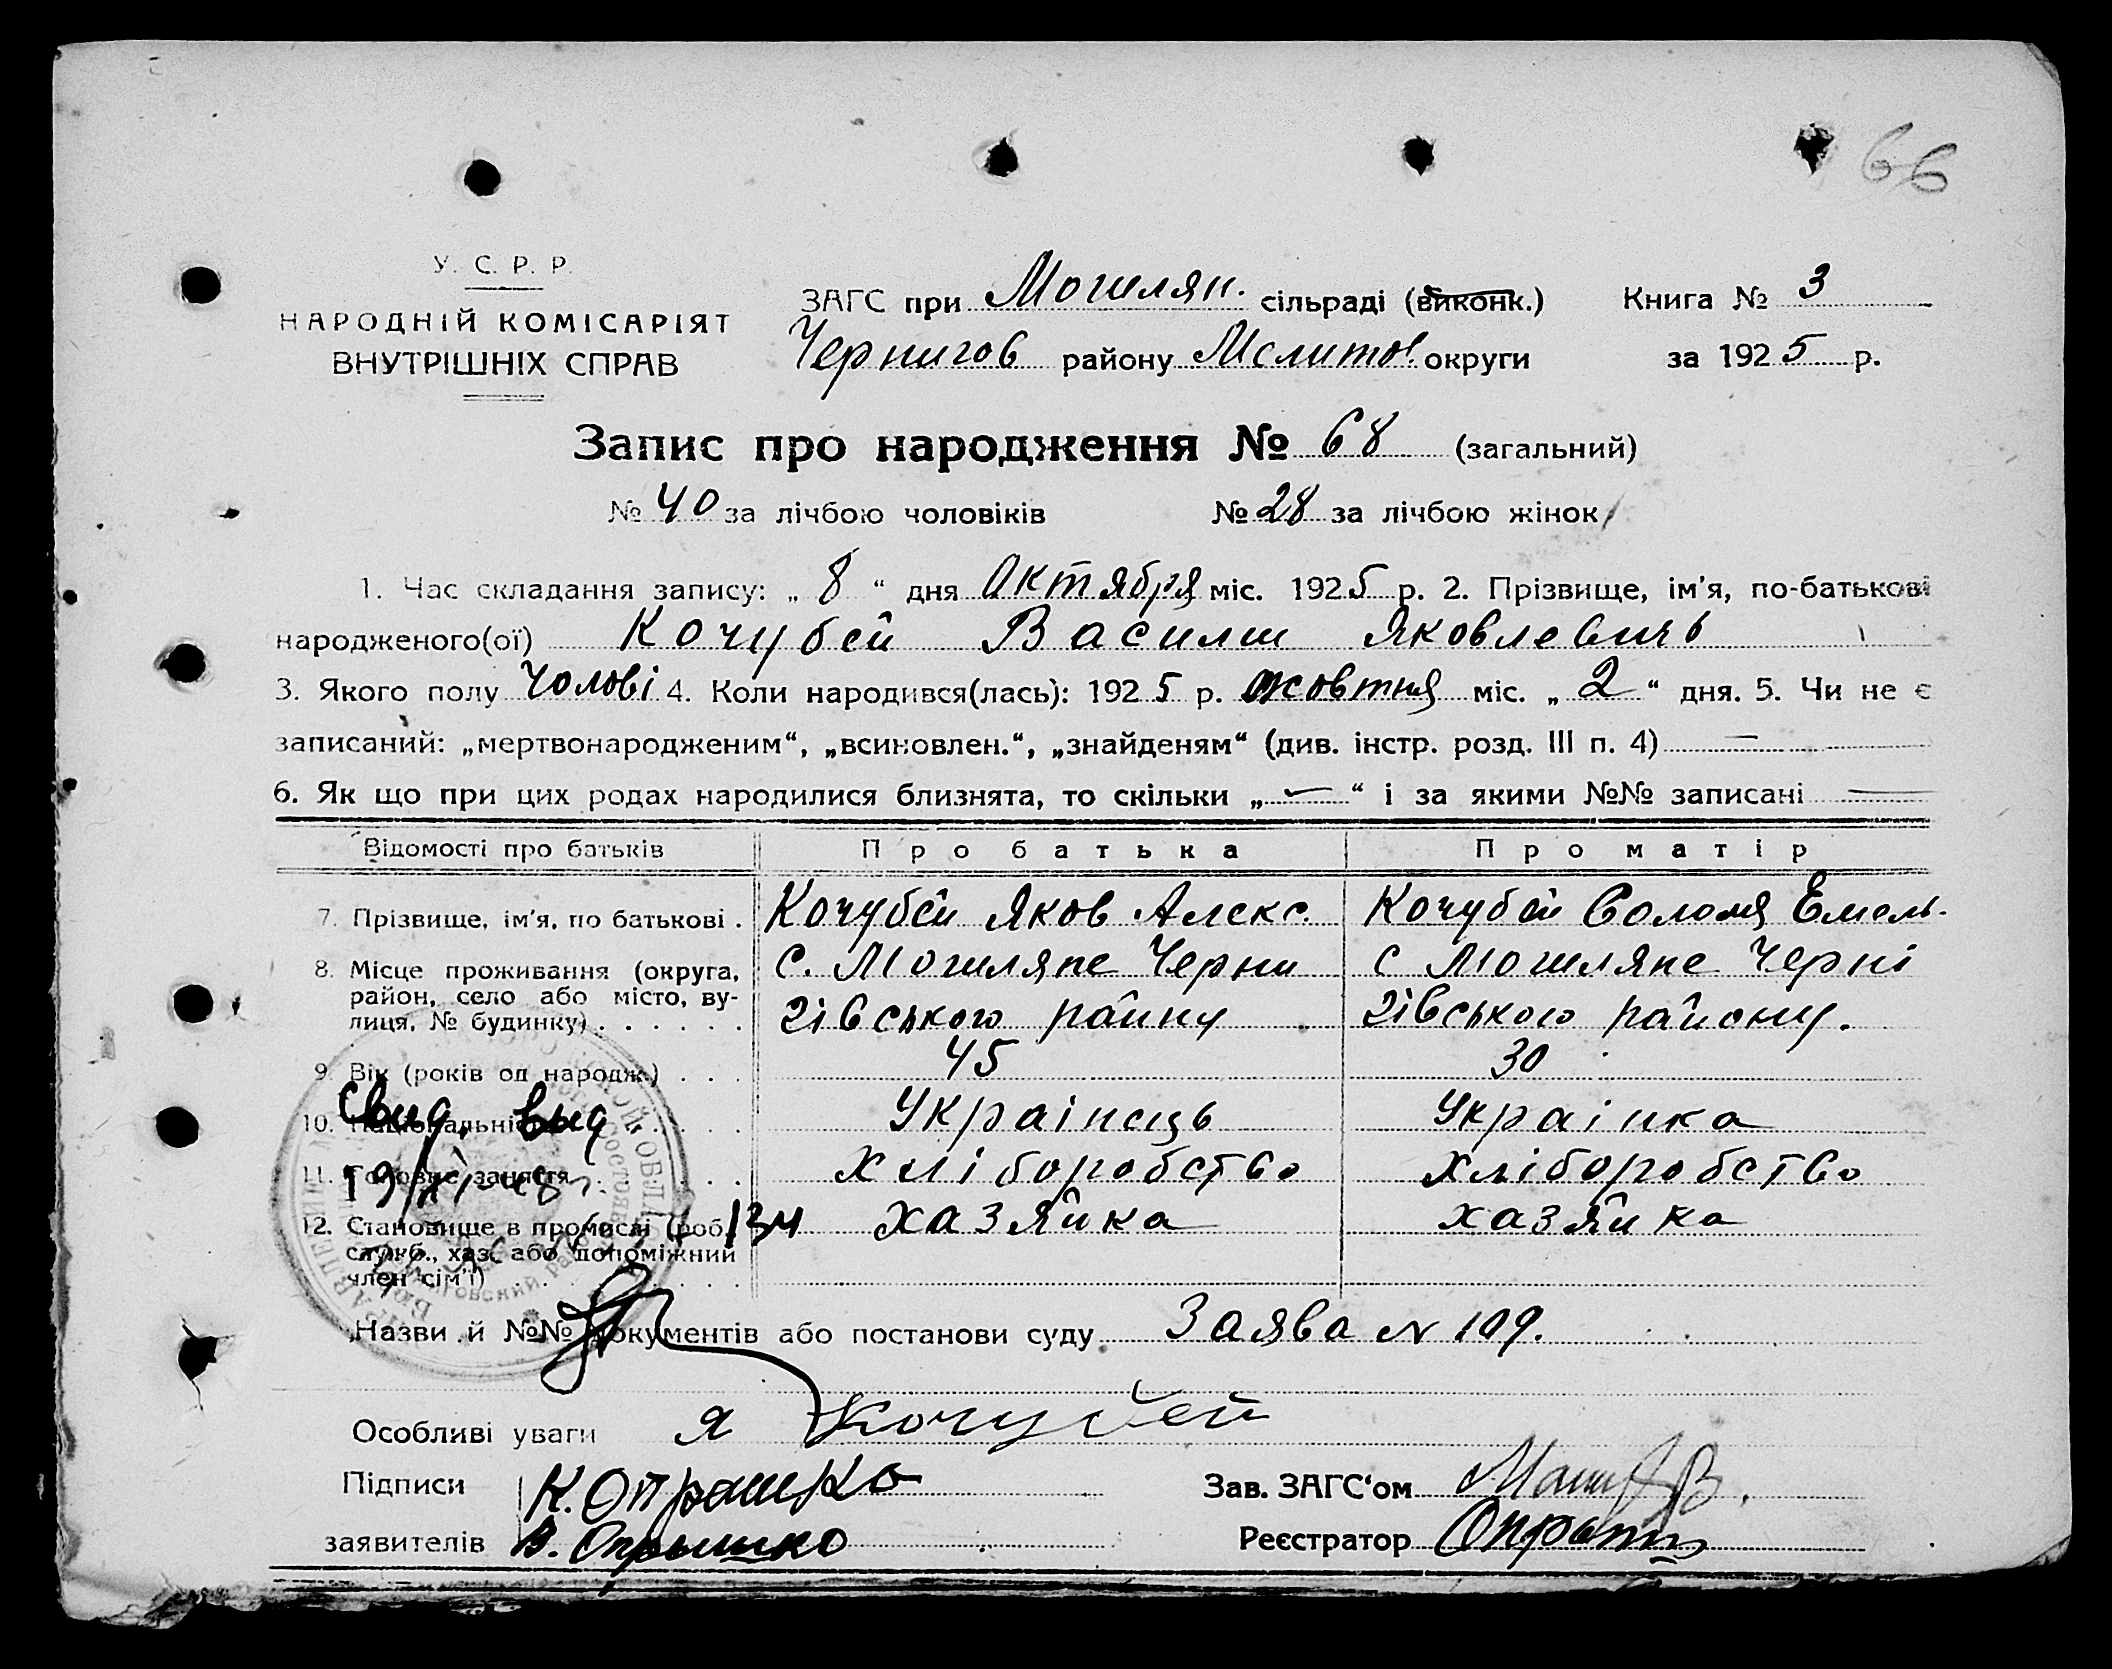 66
У. С. Р. Р.
НАРОДНІЙ КОМІСАРІЯТ
ВНУТРІШНІХ СПРАВ
ЗАГС при Могилян. сільраді (виконк.) Книга № 3
Чернигов району Мелитоп. округи за 1925 р.
Запис про народження № 68 (загальний)
№ 40 за лічбою чоловіків № 28 за лічбою жінок
1. Час складання запису: „ 8 “ дня Октября міс. 1925 р. 2. Прізвище, ім'я, по-батькові
народженого(ої) Кочубей Василии Яковлевичь
3. Якого полу Чолові 4. Коли народився(лась): 1925 р. жовтня міс. „ 2 “ дня. 5. Чи не є
записаний: „мертвонародженим“, „всиновлен.“, „знайденям“ (див. інстр. розд. III п. 4) —
6. Як що при цих родах народилися близнята, то скільки „ — “ і за якими №№ записані —
Відомості про батьків Про батька Про матір
7. Прізвище, ім'я, по батькові . Кочубей Яков Алекс. Кочубей Соломя Емель.
8. Місце проживання (округа, район, село або місто, вулиця, № будинку) . . . . . .
с. Могиляне Черни с Могиляне Черні
гівського району гівського району.
9. Вік (років од народж.) . . . 45 30
10. Національність . . . . . Українець Українка
Свид. выд
11. Головне заняття . . . . . хліборобство хліборобство
12. Становище в промислі (роб., служб., хаз. або допоміжний член сім'ї) . . . . . . . хазяйка хазяйка
Назви й №№ документів або постанови суду Заява N 109.
Особливі уваги я Кочубей
Підписи К. Опрашко Зав. ЗАГС'ом
заявителів В. Опрышко Реєстратор